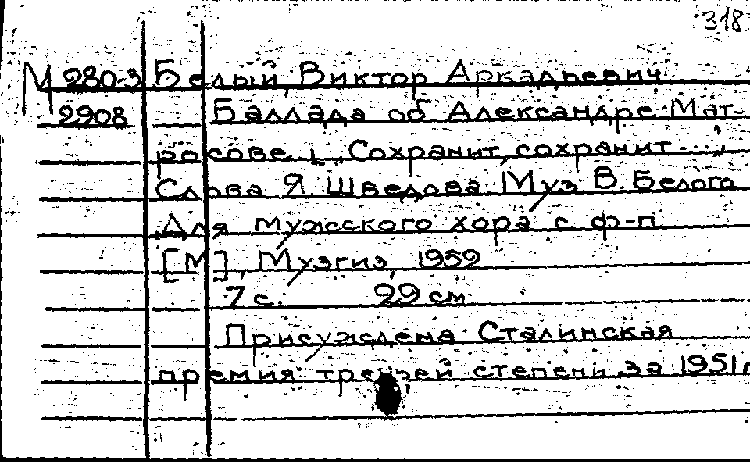 318
М 280-3 Белый, Виктор Аркадьевич
2908 Баллада об Александре Мат-
росове. „Сохранит, сохранит...“;
Слова Я. Шведова Муз. В. Белого
Для мужского хора с ф-п.
[М], Музгиз, 1952
7 с. 29 см
Присуждена Сталинская
премия третьей степени за 1951 г